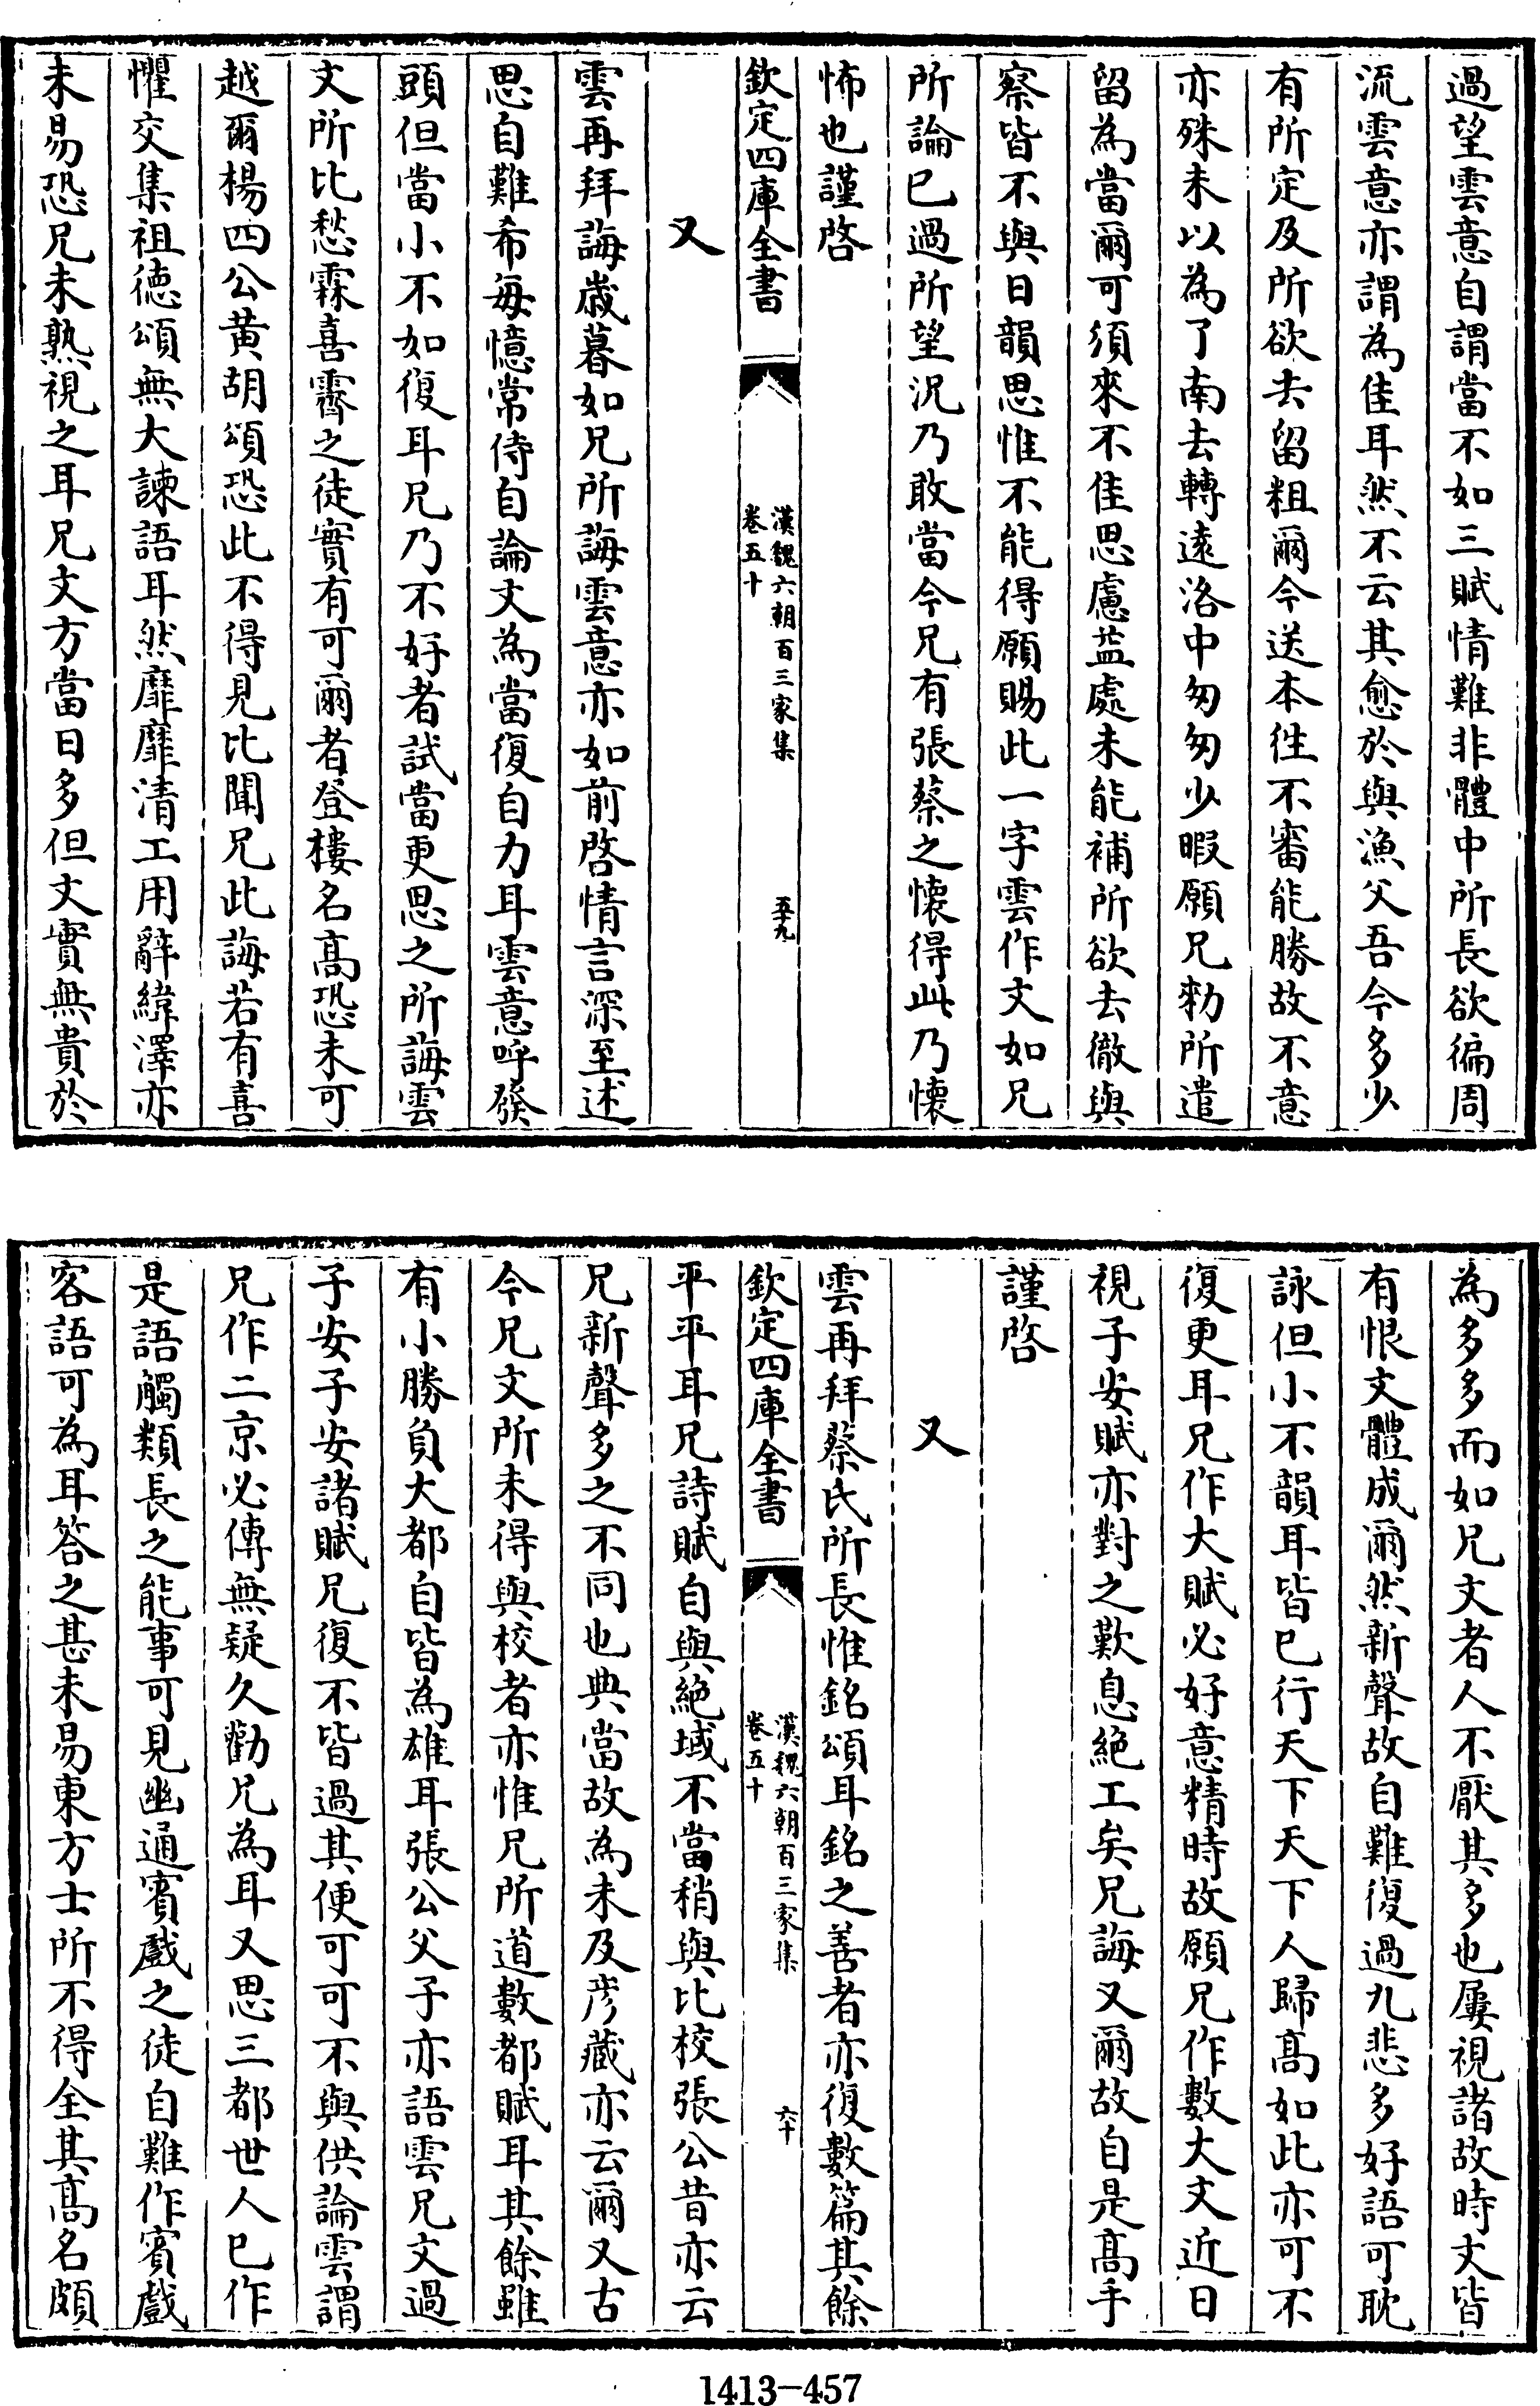 過望雲意自謂當不如三賦情難非體中所長欲徧周
流雲意亦謂為佳耳然不云其愈於與漁父吾今多少
有所定及所欲去留粗爾今送本徃不審能勝故不意
亦殊未以為了南去轉遠洛中匆匆少暇願兄勑所遣
留為當爾可須來不佳思慮益處未能補所欲去徹與
察皆不與日韻思惟不能得願賜此一字雲作文如兄
所論已過所望況乃敢當今兄有張蔡之懷得此乃懷
怖也謹啓
欽定四庫全書
漢魏六朝百三家集
卷五十
五十九
又
雲再拜誨歲暮如兄所誨雲意亦如前啓情言深至述
思自難希每憶常侍自論文為當復自力耳雲意呼發
頭但當小不如復耳兄乃不好者試當更思之所誨雲
文所比愁霖喜霽之徒實有可爾者登樓名高恐未可
越爾楊四公黄胡頌恐此不得見比聞兄此誨若有喜
懼交集祖徳頌無大諫語耳然靡靡清工用辭緯澤亦
未易恐兄未熟視之耳兄文方當日多但文實無貴於
為多多而如兄文者人不厭其多也屢視諸故時文皆
有恨文體成爾然新聲故自難復過九悲多好語可耽
詠但小不韻耳皆已行天下天下人歸高如此亦可不
復更耳兄作大賦必好意精時故願兄作數大文近日
視子安賦亦對之歎息絶工矣兄誨又爾故自是髙手
謹啓
又
雲再拜蔡氏所長惟銘頌耳銘之善者亦復數篇其餘
欽定四庫全書
漢魏六朝百三家集
卷五十
六十
平平耳兄詩賦自與絶域不當稍與比校張公昔亦云
兄新聲多之不同也典當故為未及彦藏亦云爾又古
今兄文所未得與校者亦惟兄所道數都賦耳其餘雖
有小勝負大都自皆為雄耳張公父子亦語雲兄文過
子安子安諸賦兄復不皆過其便可可不與供論雲謂
兄作二京必傳無疑久勸兄為耳又思三都世人已作
是語觸類長之能事可見幽通賓戲之徒自難作賓戲
客語可為耳答之甚未易東方士所不得全其髙名頗
1413-457